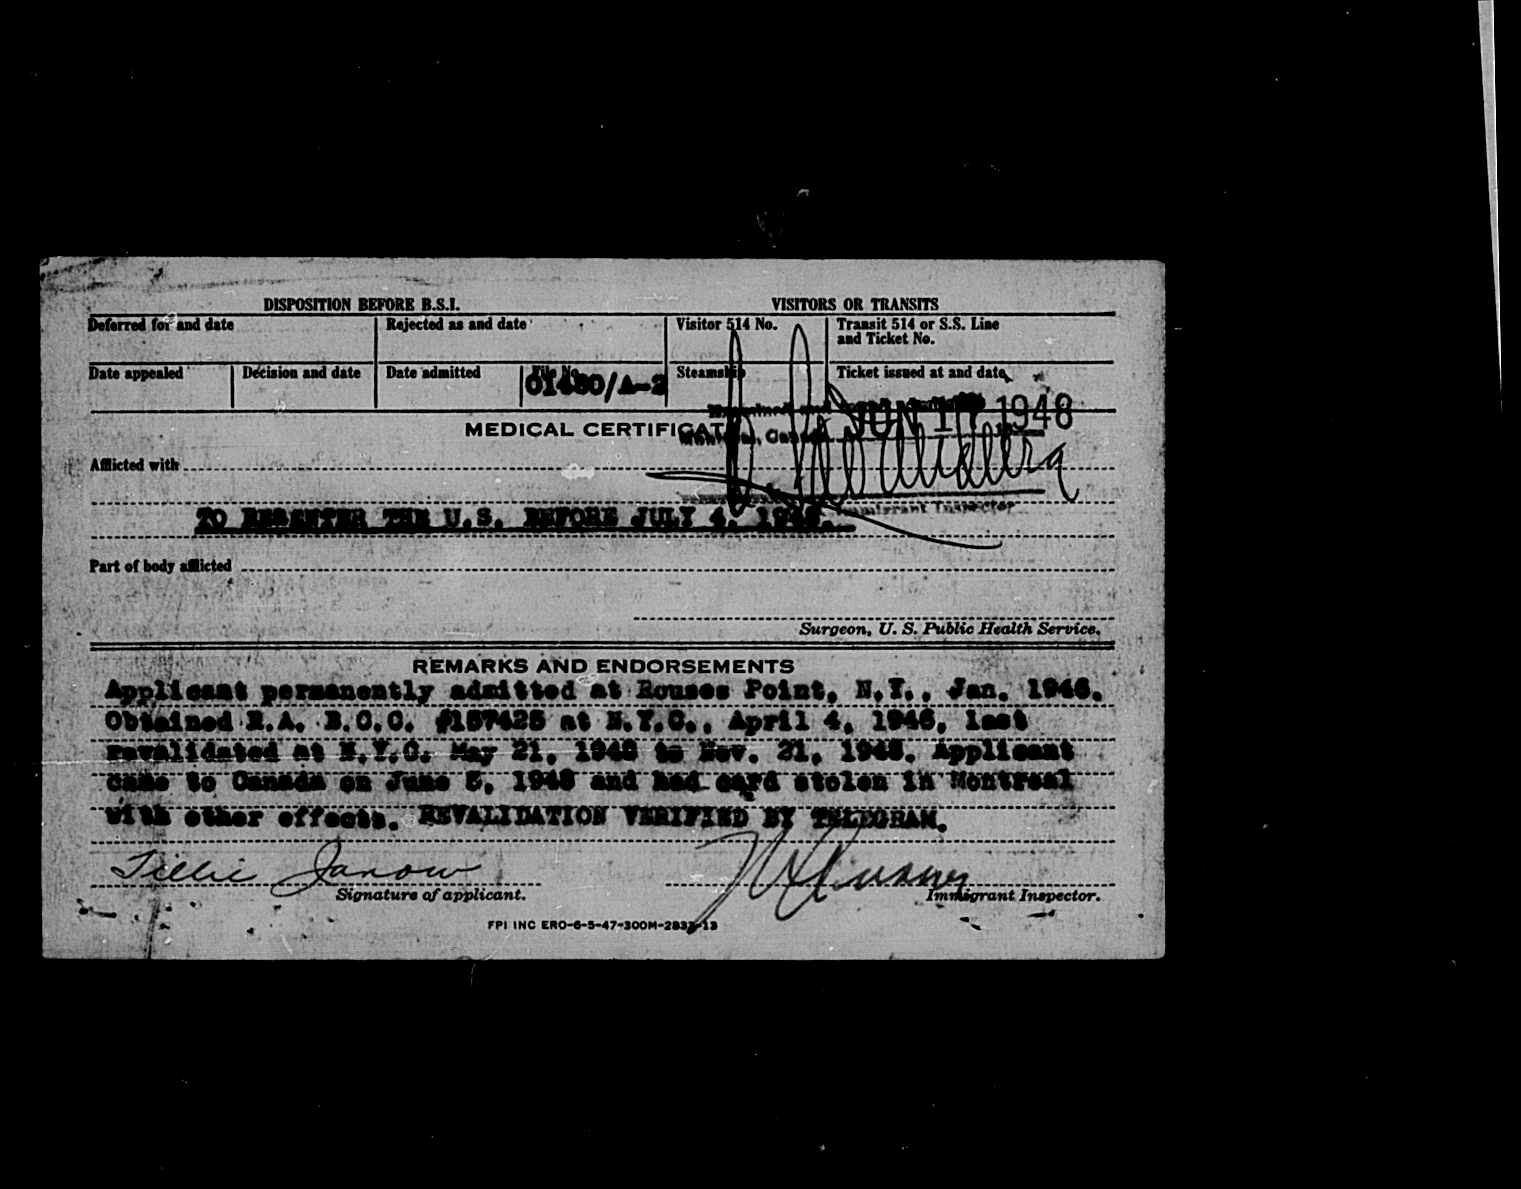 DISPOSITION BEFORE B.S.I.
VISITORS OR TRANSITS
Deferred for and date
Rejected as and date
Visitor 514 No.
Transit 514 or S.S. Line
and Ticket No.
Date appealed
Decision and date
Date admitted
File No.
01480/A-2
Steamship
Ticket issued at and date
JUN 17 1948
MEDICAL CERTIFICATE
Montreal, Canada
Afflicted with
Immigrant Inspector
TO REENTER THE U.S. BEFORE JULY 4, 1948.
Part of body afflicted
Surgeon, U. S. Public Health Service.
REMARKS AND ENDORSEMENTS
Applicant permanently admitted at Rouses Point, N.Y., Jan. 1946.
Obtained R.A. B.C.C. #157425 at N.Y.C., April 4, 1946, last
revalidated at N.Y.C. May 21, 1948 to Nov. 21, 1948. Applicant
came to Canada on June 5, 1948 and had card stolen in Montreal
with other effects. REVALIDATION VERIFIED BY TELEGRAM.
Tillie Janow
Signature of applicant.
Immigrant Inspector.
FPI INC ERO-6-5-47-300M-2833-13